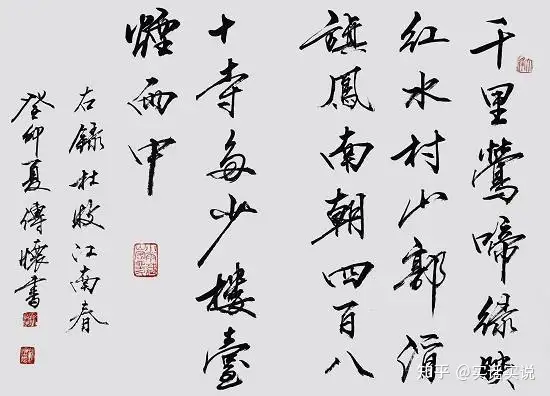 千里鶯啼緑映
紅水村山郭酒
旗風南朝四百八
十寺多少樓臺
煙雨中
右録杜牧江南春
癸卯夏傳懷書
知乎 @实话实说